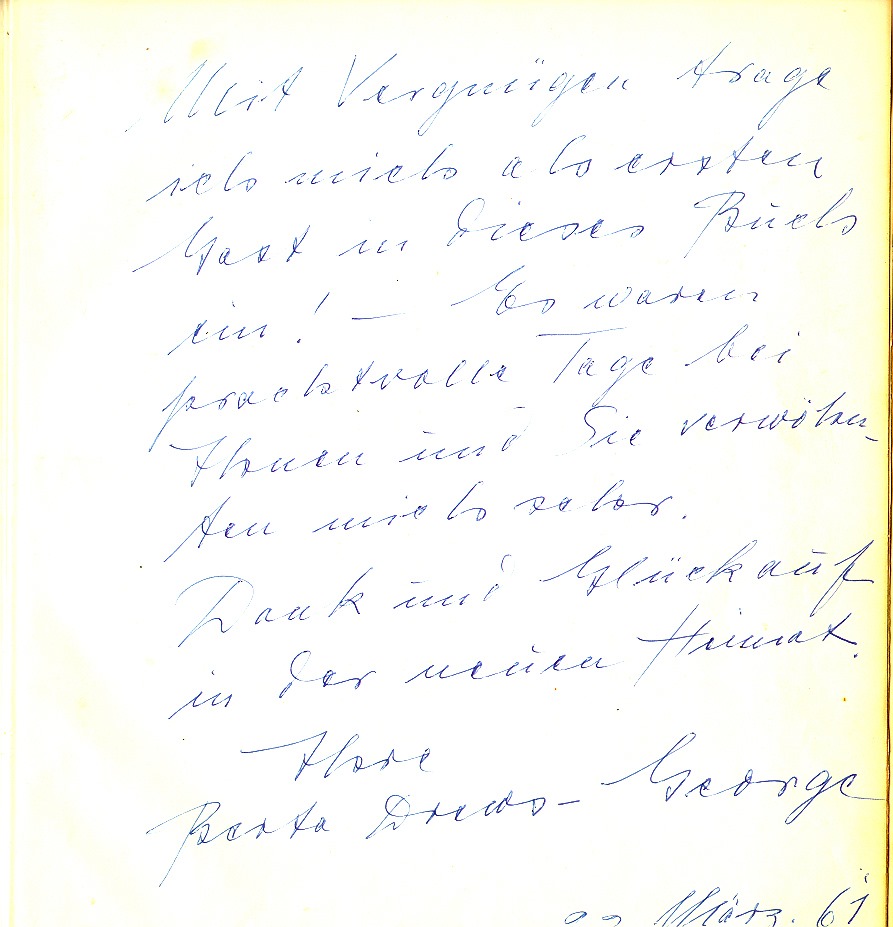 Mit Vergnügen trage
ich mich als ersten
Gast in dieses Buch
ein! – Es waren
prachtvolle Tage bei
Ihnen und Sie verwöhn-
ten mich sehr.
Dank und Glückauf
in der neuen Heimat.
Ihre
Berta Drews-George
März. 61